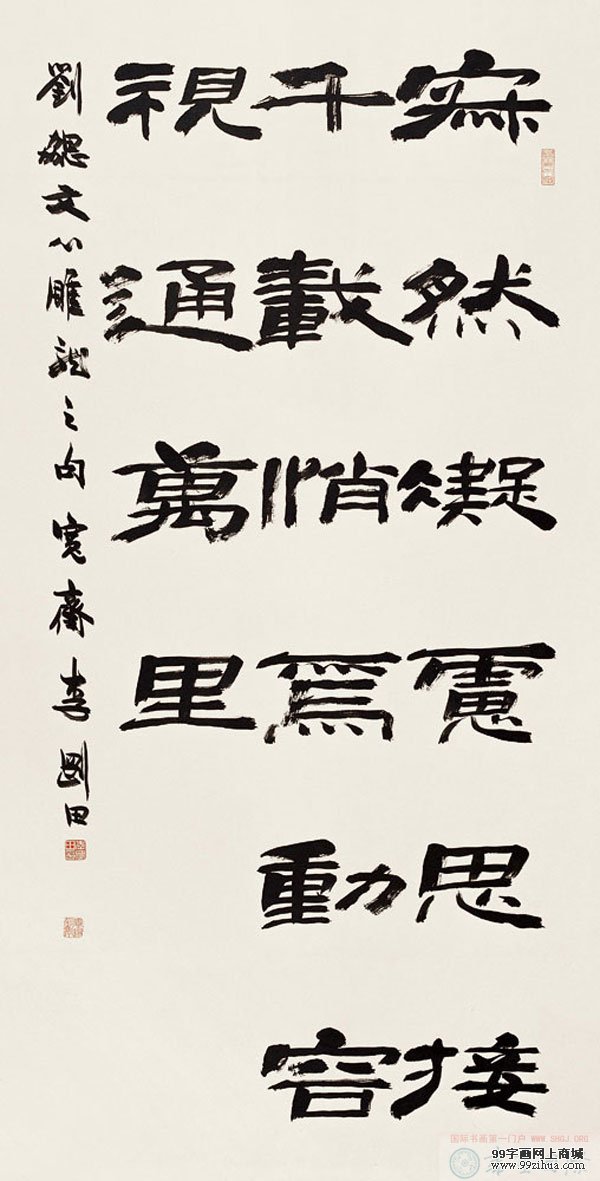 寂然凝慮思接
千載悄焉動容
視通萬里
劉勰文心雕龍之句寬齋李剛田
国际书画第一门户 WWW.SHGJ.ORG
99字画网上商城
www.99zihua.com